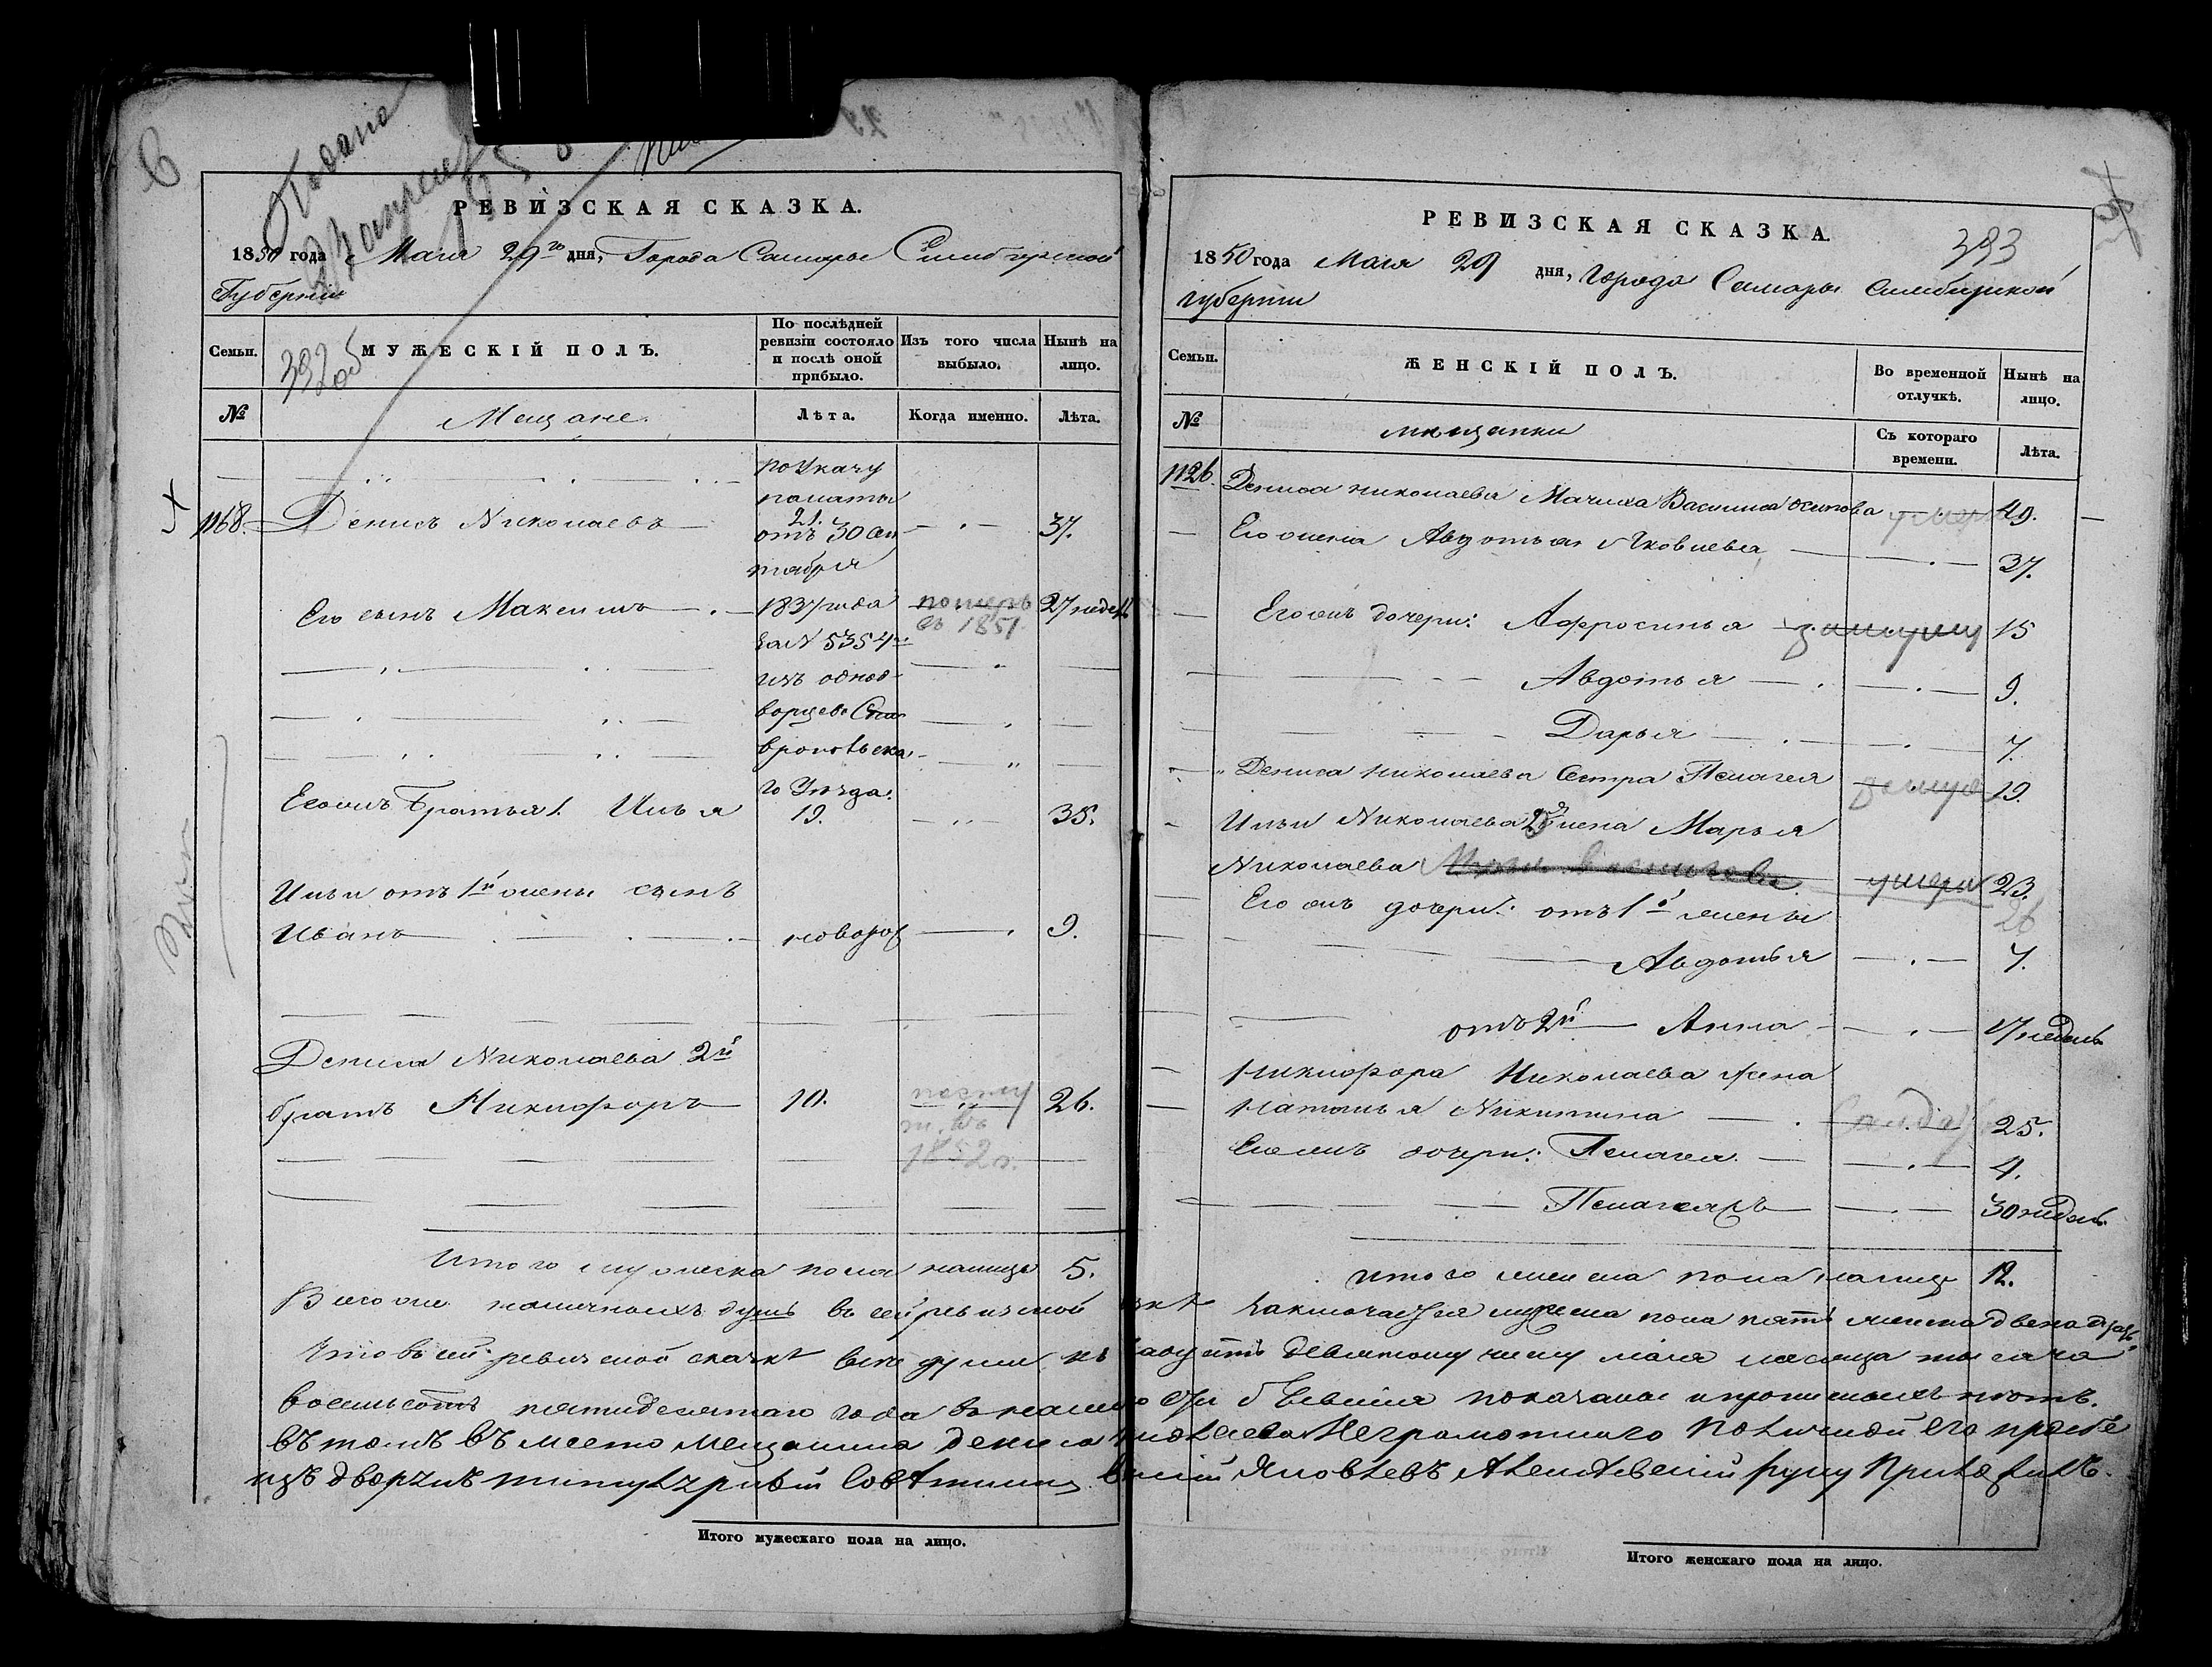 Подано
С
РЕВИЗСКАЯ СКАЗКА.
1850 года Мая 29го дня, Города Самары Симбирской
Губернии
Семьи.
МУЖЕСКІЙ ПОЛЪ.
392об
По послѣдней
ревизіи состояло
и послѣ оной
прибыло.
Изъ того числа
выбыло.
Нынѣ на
лицо.
№
Мещане.
Лѣта.
Когда именно.
Лѣта.
по указу
палаты
1168. Денисъ Николаевъ 21. 37.
отъ 30 Сен
тября
Его сынъ Максимъ 1837 года померъ 27 недель
въ 1851.
за N 5354м
изъ однод
ворцевъ Став
вропольска
го Уѣзда.
Его жъ Братья 1. Илья 19. 35.
Ильи отъ 1й жены сынъ
Иванъ новорож 9.
Дениса Николаева 2й
братъ Никифоръ 10. 26.
1852 г.
Итого мужеска пола налицо 5.
РЕВИЗСКАЯ СКАЗКА.
393
1850 года Мая 29 дня, города Самары Симбирской
губернии
Семьи.
ЖЕНСКІЙ ПОЛЪ.
Во временной
отлучкѣ.
Нынѣ на
лицо.
№
мещанки
Съ котораго
времени.
Лѣта.
1126. Дениса Николаева Мачиха Василиса Осипова умер 49.
Его жена Авдотья Яковлева 37.
Его жъ дочери: Афросинья замужу 15
Авдотья 9.
Дарья 7.
Дениса Николаева Сестра Пелагея замуж 19.
Ильи Николаева 2я жена Марья
Николаева умерла 23.
26
Его жъ дочери: отъ 1й жены
Авдотья 7.
отъ 2й Анна 17 недель
Никифора Николаева жена
Наталья Никитина Солдат 25.
Его жъ дочери: Пелагея 4.
Пелагея 30 недель
итого женска пола налицо 12.
Всего же наличныхъ душъ въ сей ревизской сказкѣ заключается мужеска пола пять женска двенадцать
Что въ сей ревизской сказкѣ все души къ двадцать девятому числу мая месяца тысяча
восемьсотъ пятидесятаго года въ налич показаны и прописныхъ нѣтъ.
въ томъ въ место мещанина Дениса Николаева неграмотнаго по личной его прозбе
изъ дворянъ титулярный советникъ Яковлевъ руку приложилъ.
Итого мужескаго пола на лицо.
Итого женскаго пола на лицо.